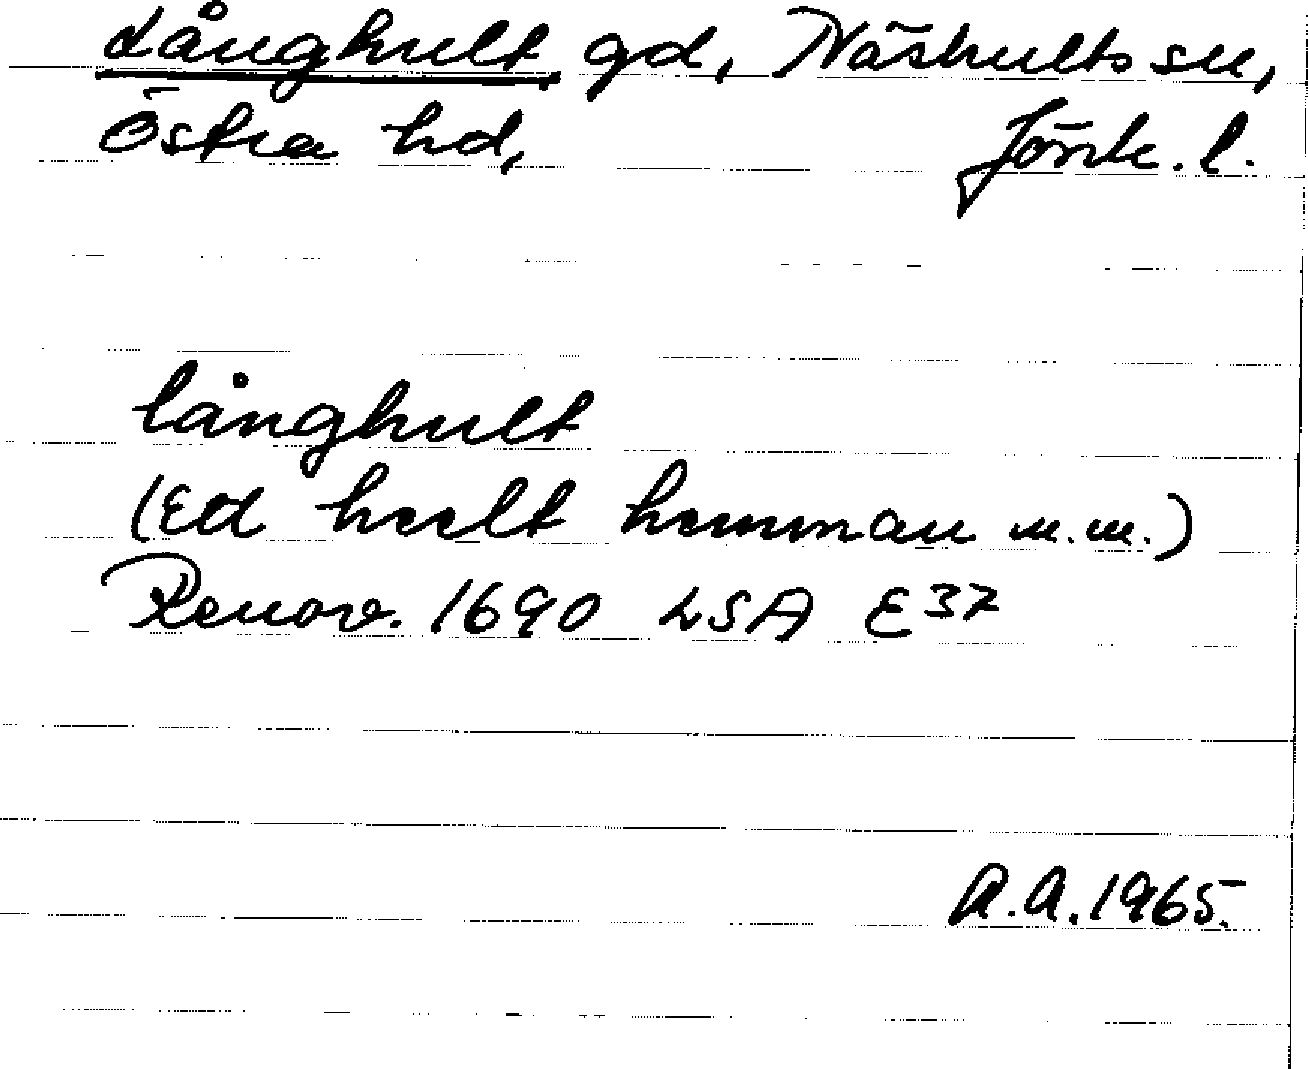 Långhult gd, Näshults sn,
Östra hd, Jönk. l.
långhult
(Ett heelt hemman m.m.)
Renov. 1690 LSA E37
A.A. 1965.